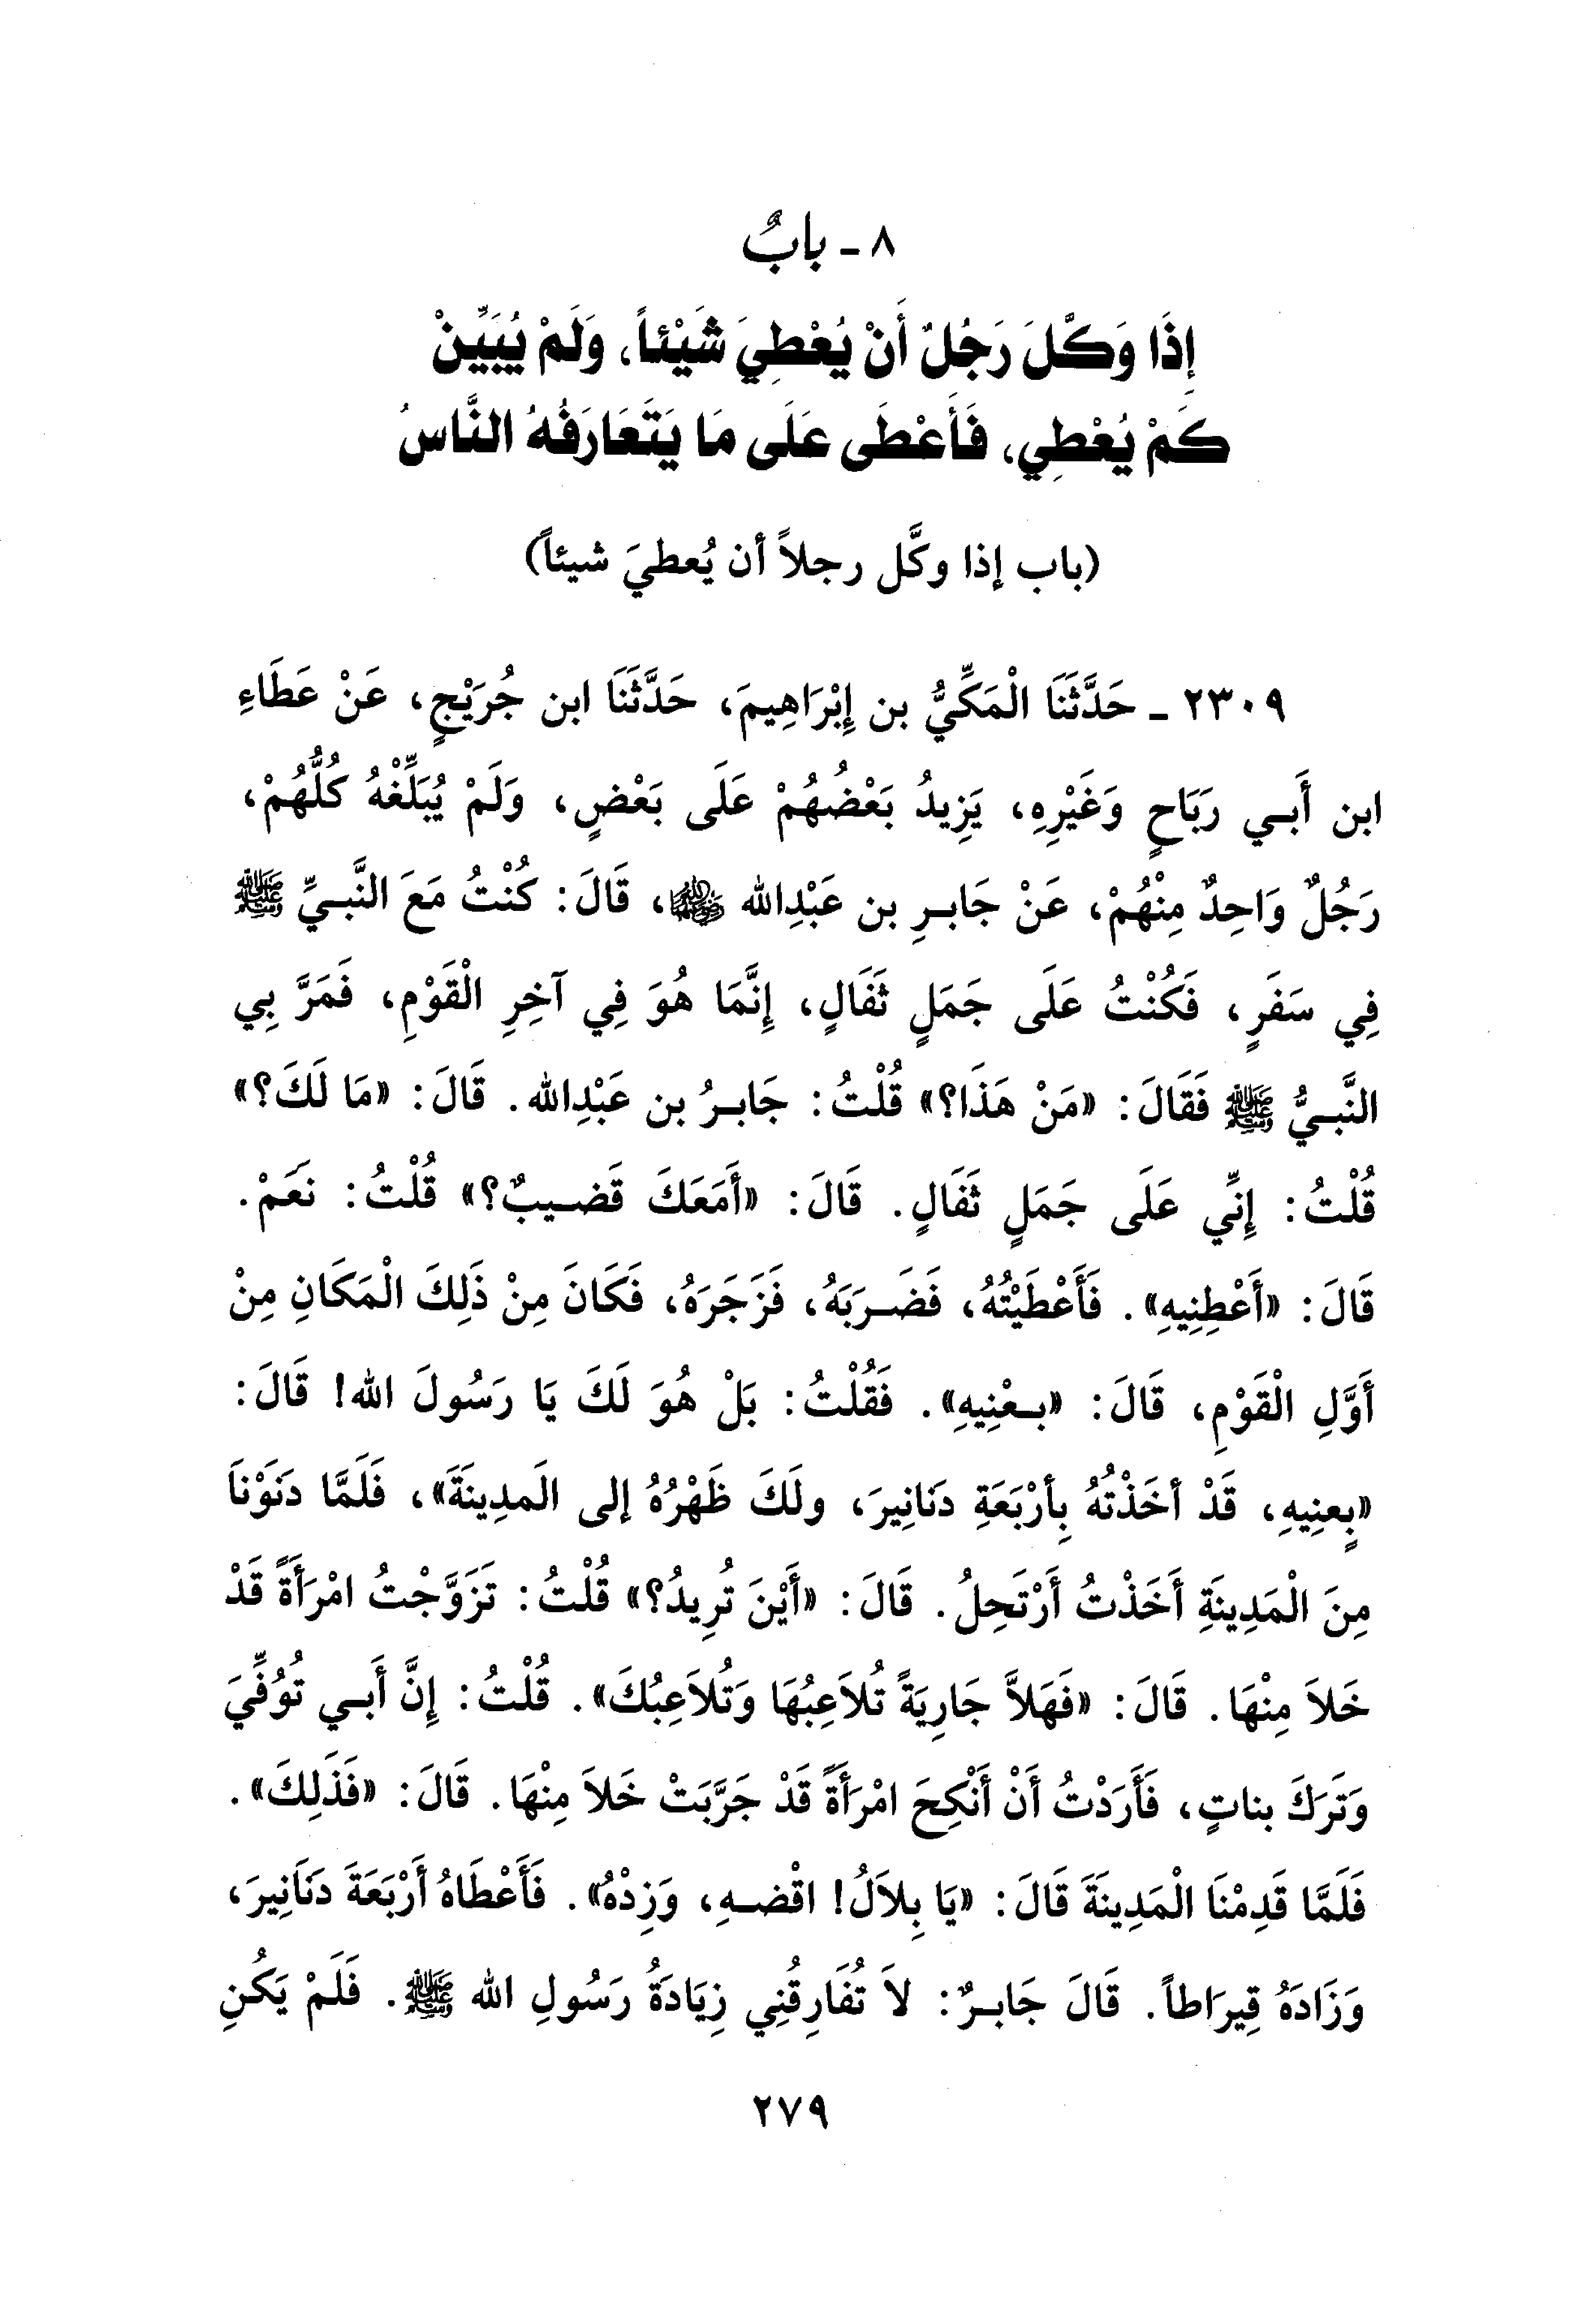 ٨ - بابٌ
إِذَا وَكَّلَ رَجُلٌ أَنْ يُعْطِيَ شَيْئاً، وَلَمْ يُبَيِّنْ
كَمْ يُعْطِي، فَأَعْطَى عَلَى مَا يَتَعَارَفُهُ النَّاسُ
(باب إذا وكَّل رجلاً أن يُعطيَ شيئاً)
٢٣٠٩ - حَدَّثَنَا الْمَكِّيُّ بن إِبْرَاهِيمَ، حَدَّثَنَا ابن جُرَيْجٍ، عَنْ عَطَاءِ
ابن أَبي رَبَاحٍ وَغَيْرِهِ، يَزِيدُ بَعْضُهُمْ عَلَى بَعْضٍ، وَلَمْ يُبَلِّغْهُ كُلُّهُمْ،
رَجُلٌ وَاحِدٌ مِنْهُمْ، عَنْ جَابرِ بن عَبْدِالله رضي الله عنهما، قَالَ: كُنْتُ مَعَ النَّبيِّ ﷺ
فِي سَفَرٍ، فَكُنْتُ عَلَى جَمَلٍ ثَفَالٍ، إِنَّمَا هُوَ فِي آخِرِ الْقَوْمِ، فَمَرَّ بِي
النَّبيُّ ﷺ فَقَالَ: «مَنْ هَذَا؟» قُلْتُ: جَابرُ بن عَبْدِالله. قَالَ: «مَا لَكَ؟»
قُلْتُ: إِنِّي عَلَى جَمَلٍ ثَفَالٍ. قَالَ: «أَمَعَكَ قَضيبٌ؟» قُلْتُ: نَعَمْ.
قَالَ: «أَعْطِنِيهِ». فَأَعْطَيْتُهُ، فَضَرَبَهُ، فَزَجَرَهُ، فَكَانَ مِنْ ذَلِكَ الْمَكَانِ مِنْ
أَوَّلِ الْقَوْمِ، قَالَ: «بعْنِيهِ». فَقُلْتُ: بَلْ هُوَ لَكَ يَا رَسُولَ الله! قَالَ:
«بِعنِيهِ، قَدْ أخَذْتُهُ بِأرْبَعَةِ دَنانِيرَ، ولَكَ ظَهْرُهُ إلى الَمدِينَةَ»، فَلَمَّا دَنَوْناَ
مِنَ الْمَدِينَةِ أَخَذْتُ أَرْتَحِلُ. قَالَ: «أَيْنَ تُرِيدُ؟» قُلْتُ: تَزَوَّجْتُ امْرَأَةً قَدْ
خَلاَ مِنْهَا. قَالَ: «فَهَلاَّ جَارِيَةً تُلاَعِبُهَا وَتُلاَعِبُكَ». قُلْتُ: إِنَّ أَبي تُوُفِّيَ
وَتَرَكَ بناتٍ، فَأَرَدْتُ أَنْ أَنْكِحَ امْرَأَةً قَدْ جَرَّبَتْ خَلاَ مِنْهَا. قَالَ: «فَذَلِكَ».
فَلَمَّا قَدِمْنَا الْمَدِينَةَ قَالَ: «يَا بِلاَلُ! اقْضهِ، وَزِدْهُ». فَأَعْطَاهُ أَرْبَعَةَ دَنَانِيرَ،
وَزَادَهُ قِيرَاطاً. قَالَ جَابرٌ: لاَ تُفَارِقُنِي زِيَادَةُ رَسُولِ الله ﷺ. فَلَمْ يَكُنِ
٢٧٩